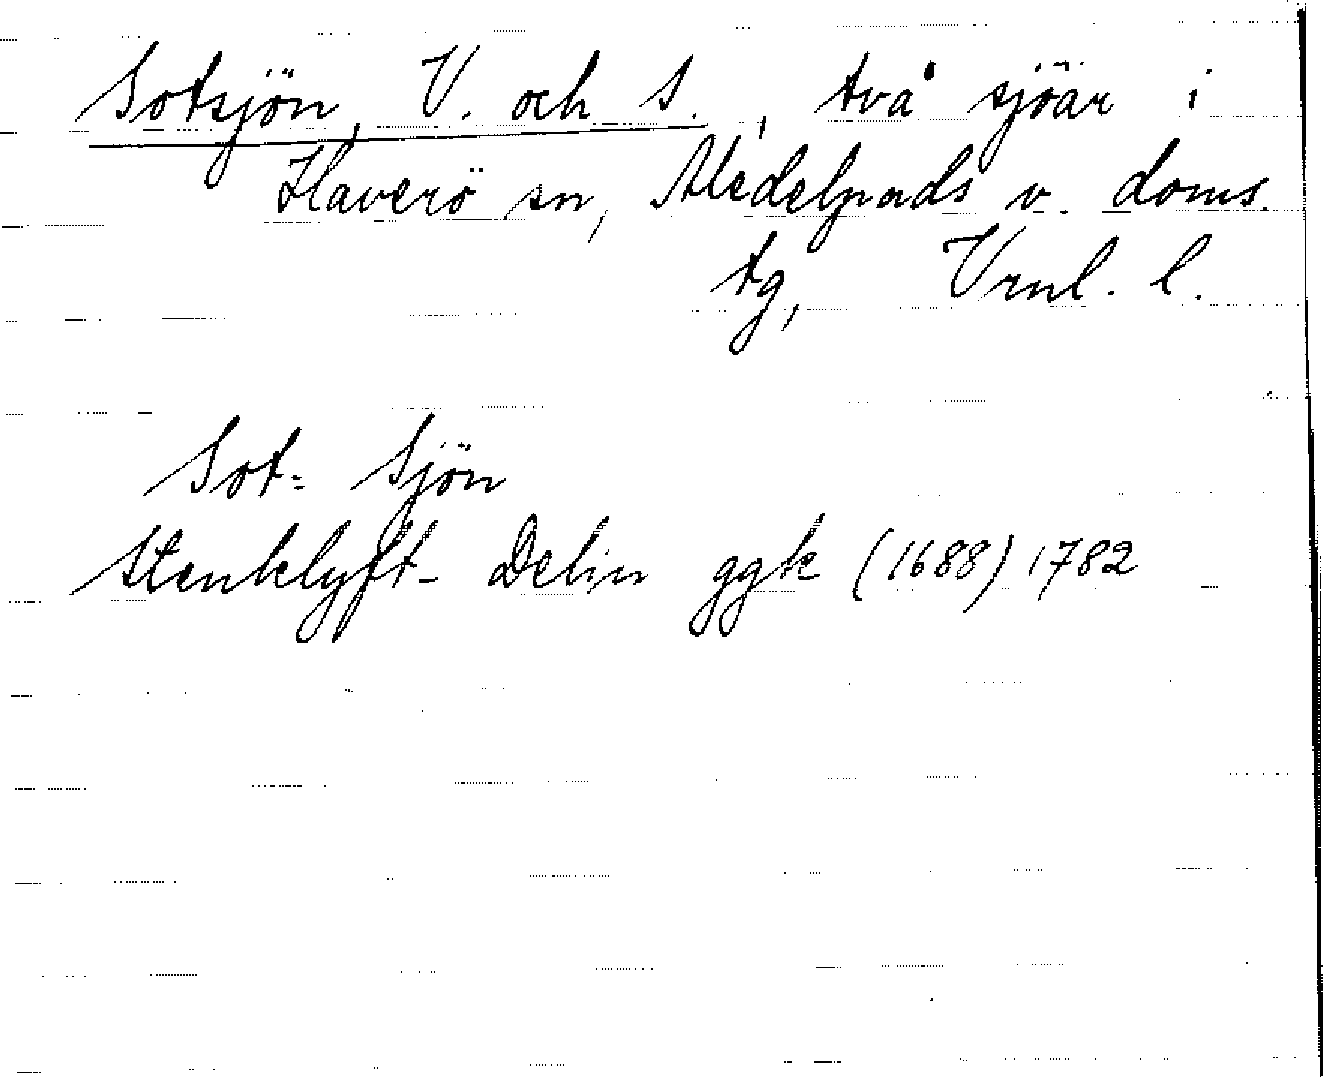 Sotsjön, V. och S., två sjöar i
Haverö sn, Medelpads v. doms.
tg, Vrnl. l.
Sot= Sjön
Stenklyft- Delin ggk (1688) 1782